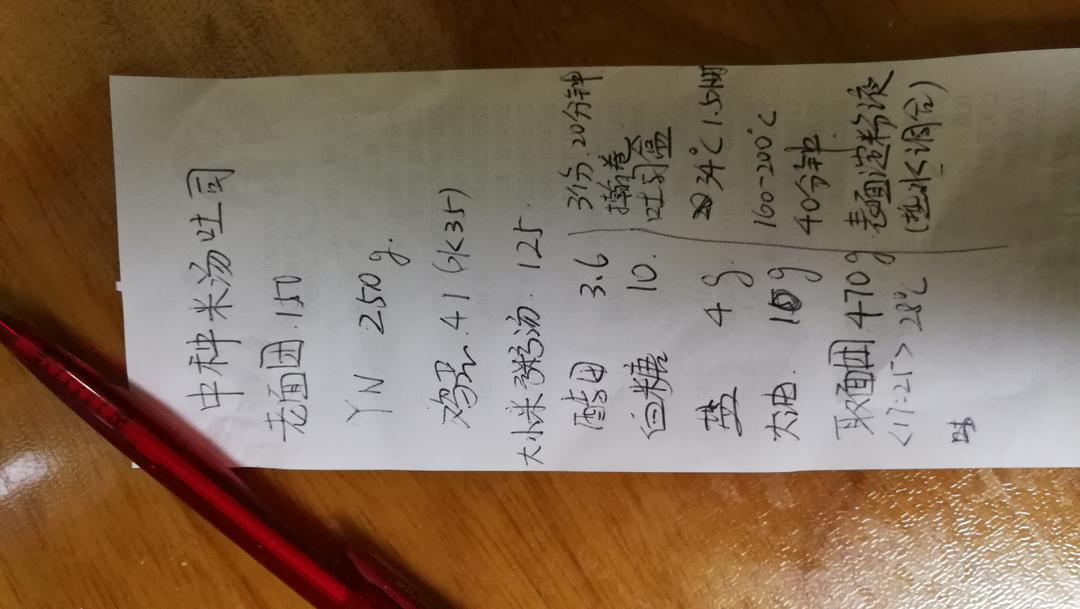 中种米汤吐司
老面团.150
YN 250g.
鸡蛋.41(水35)
大小米粥汤.125
酵母 3.6
白糖 10.
盐 4g
大油. 10g
取面团470g
<17:25> 28℃
3份.20分钟
擀卷
吐司盒
34℃ 1.5小时
160-200℃
40分钟
表面淀粉液
(热水调合)